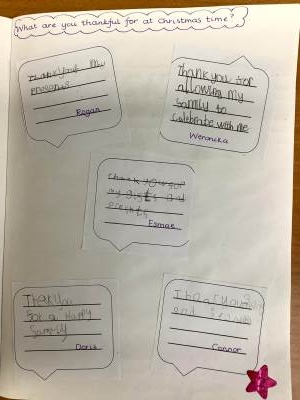 What are you thankful for at Christmas time?
Thank you
Rogan
Thank you for
allowing my
family to
celebrate with me
Weronika
thank you for
my gifts and
Esmae
Thank you
for a happy
family
Doris
Thank you
and
Connor